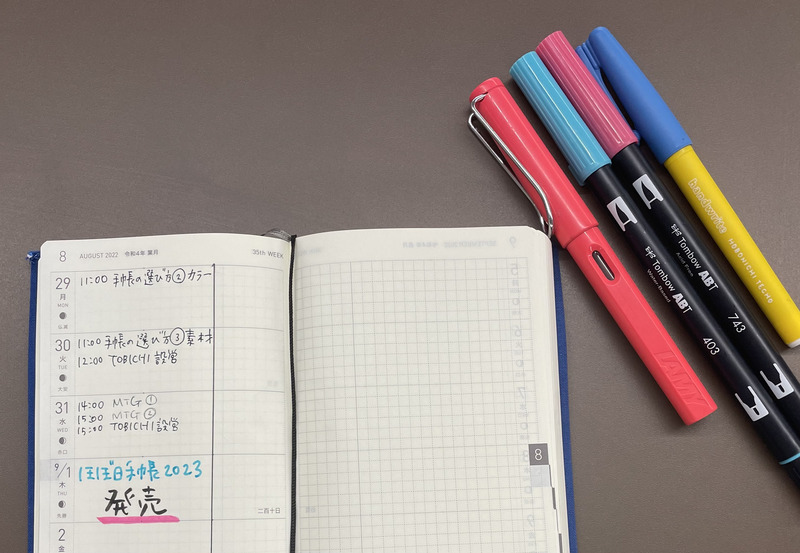 8 AUGUST 2022 令和4年 葉月 35th WEEK
29 月 MON 仏滅
11:00 手帳の選び方② カラー
30 火 TUE 大安
11:00 手帳の選び方③ 素材
12:00 TOBICHI 設営
31 水 WED 赤口
14:00 MTG①
15:00 MTG②
15:00 TOBICHI 設営
9/1 木 THU 先勝
ほぼ日手帳2023
発売
二百十日
2 金
8
LAMY
Tombow ABT
Water-Based
403
Tombow ABT
Acid Free
743
HOBONICHI TECHO